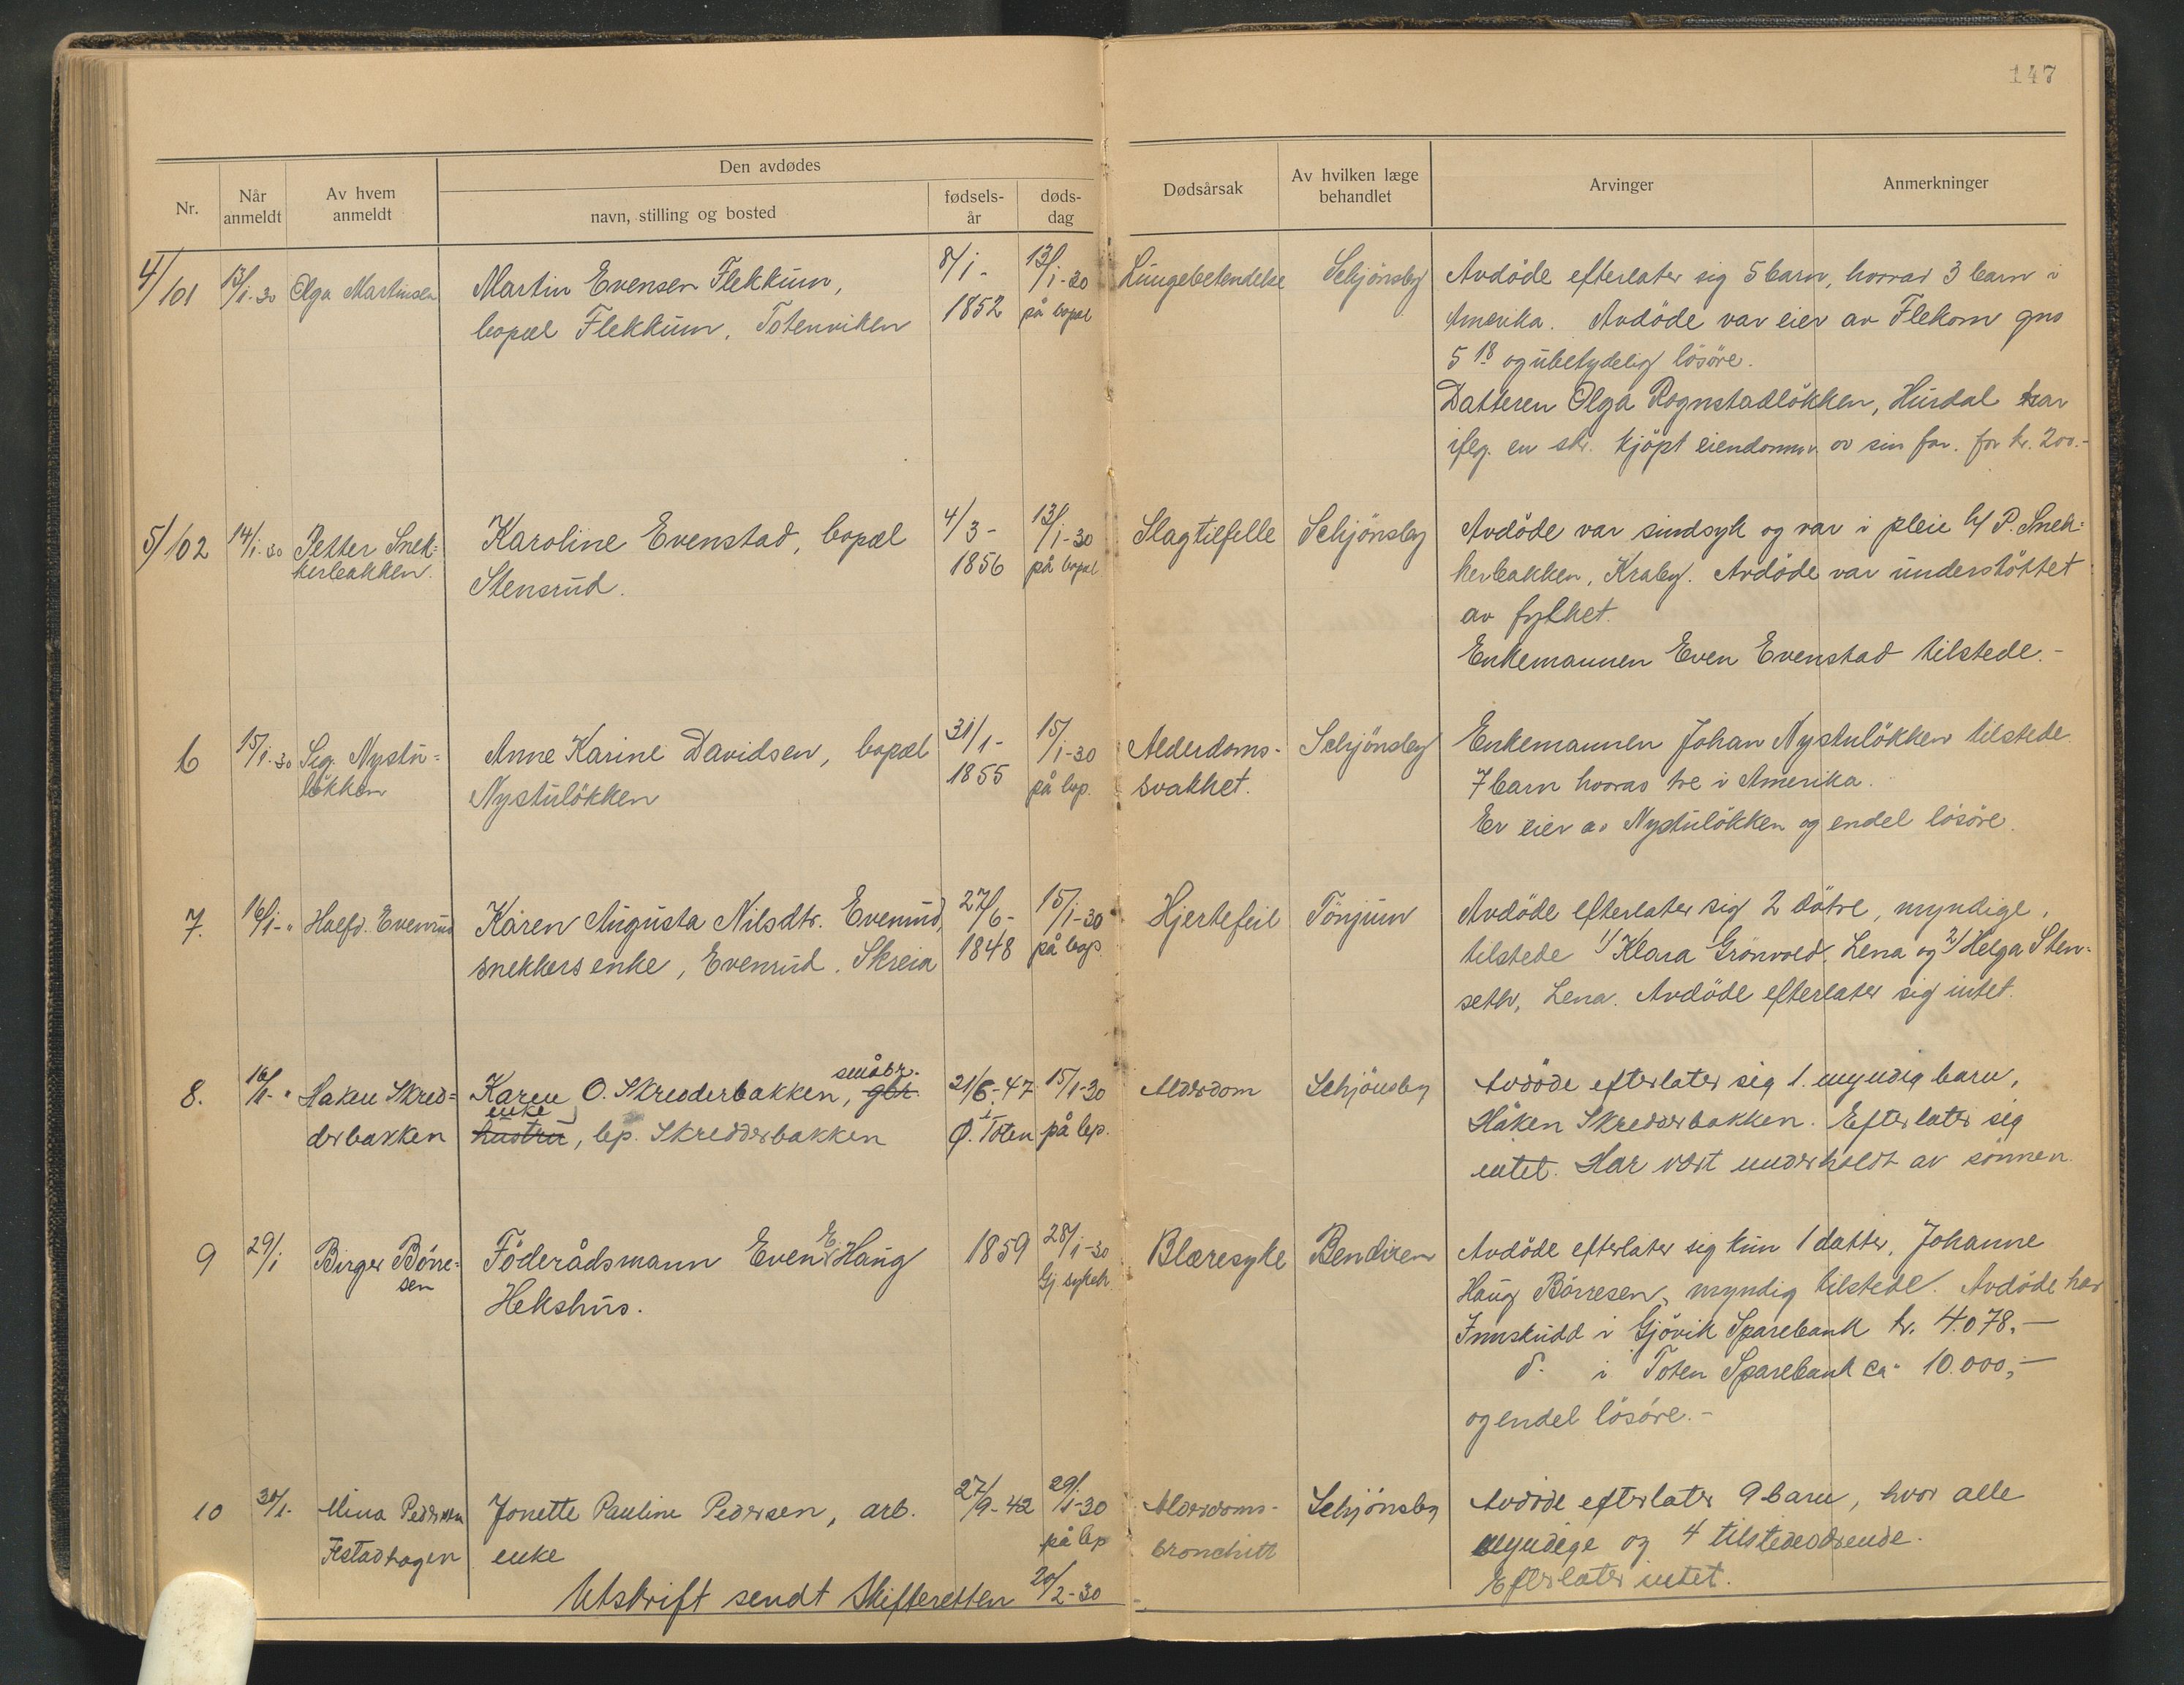 147
Den avdødes
Nr.
Når anmeldt
Av hvem anmeldt
navn, stilling og bosted
fødsels-år
døds-dag
Dødsårsak
Av hvilken læge behandlet
Arvinger
Anmerkninger
4/101 13/1-30 Olga Martinsen
Martin Evensen Flekkum,
bopæl Flekkum, Totenviken
8/1-
1852
13/1-30
på bopæl
Lungebetendelse
Schjönsby
Avdöde efterlater sig 5 barn, hvorav 3 barn i
Amerika. Avdöde var eier av Flekom gno
5 18 og ubetydelig lösöre.
Datteren Olga Rognstadlökken, Hurdal har
iflg. en skr. kjöpt eiendommen av sin far. for kr. 200.-
5/102 14/1-30 Petter Snek=
kerbakken.
Karoline Evenstad, bopæl
Stensrud.
4/3-
1856
13/1-30
på bopæl
Slagtilfelle
Schjönsby
Avdöde var sindsyk og var i pleie h/ P. Snek=
kerbakken, Kraby. Avdöde var understöttet
av fylket.
Enkemannen Even Evenstad tilstede.-
6 15/1-30 Sig. Nystu=
lökken
Anne Karine Davidsen, bopæl
Nystulökken
31/1-
1855
15/1-30
på bop.
Alderdoms-
svakhet.
Schjönsby
Enkemannen Johan Nystulökken tilstede.
7 barn hvorav tre i Amerika.
Er eier av Nystulökken og endel lösöre.
7. 16/1-" Halfd. Evenrud
Karen Augusta Nilsdtr. Evenrud,
snekkers enke, Evenrud. Skreia
27/6-
1848
15/1-30
på bop.
Hjertefeil
Tönjum
Avdöde efterlater sig 2 dötre, myndige,
tilstede 1/ Klara Grönvold, Lena og 2/ Helga Sten-
seth, Lena. Avdöde efterlater sig intet.
8. 16/1-" Haken Skred=
derbakken
småbr.
Karen O. Skredderbakken, gbr.
enke
hustru, bp. Skredderbakken
21/6-47
i
Ø. Toten
15/1-30
på bp.
Alderdom
Schjönsby
Avdöde efterlater sig 1 myndig barn,
Håken Skredderbakken. Efterlater sig
intet. Har vært underholdt av sönnen.
9 29/1 Birger Börre=
sen
Föderådsmann Even E. Haug
Hekshus.
1859
28/1-30
Gj. sykeh.
Blæresyke
Bendixen
Avdöde efterlater sig kun 1 datter, Johanne
Haug Börresen, myndig tilstede. Avdöde har
Innskudd i Gjövik Sparebank kr. 4.078,-
do. i Toten Sparebank ca " 10.000,-
og endel lösöre.-
10 30/1- Mina Pedersen
Festadhagen
Jonette Pauline Pedersen, arb.
enke
27/9-42
29/1-30
på bp
Alderdoms-
bronchitt
Schjönsby
Avdöde efterlater 9 barn, hvor alle
myndige og 4 tilstedeværende.
Efterlater intet.
Utskrift sendt Skifteretten 20/2-30